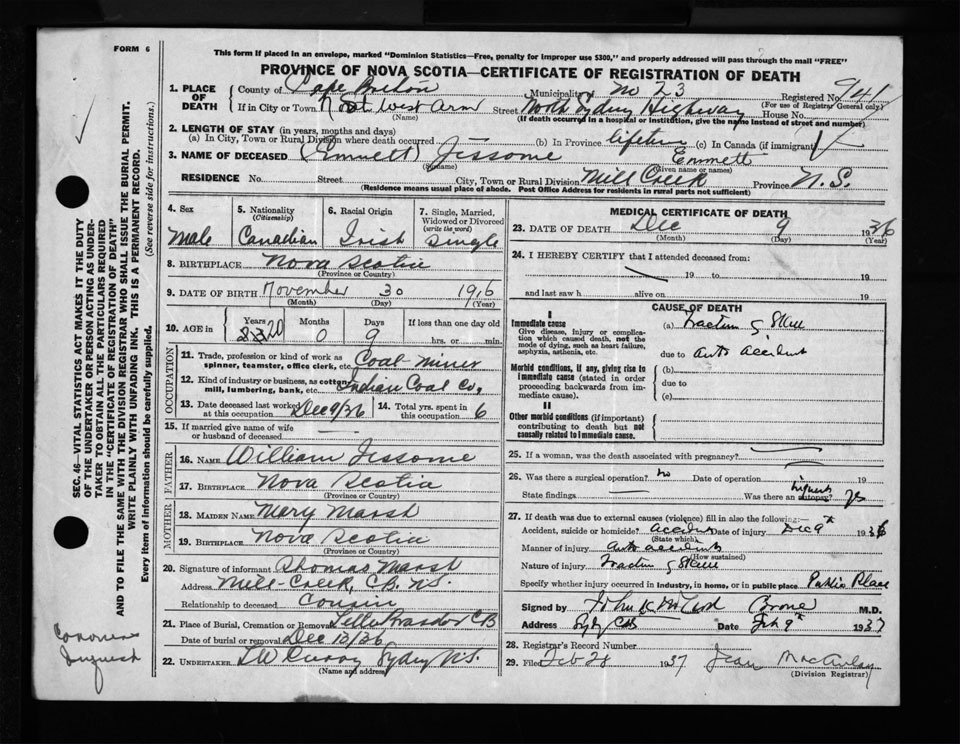 FORM 6
This form if placed in an envelope, marked "Dominion Statistics—Free, penalty for improper use $300," and properly addressed will pass through the mail "FREE"
PROVINCE OF NOVA SCOTIA—CERTIFICATE OF REGISTRATION OF DEATH
1. PLACE OF DEATH County of Cape Breton Municipality no 23 Registered No. 941
(For use of Registrar General only)
If in City or Town North West Arm Street North Sydney Highway House No.
(Name) (If death occurred in a hospital or institution, give the name instead of street and number)
2. LENGTH OF STAY (in years, months and days)
(a) In City, Town or Rural Division where death occurred (b) In Province lifetime (c) In Canada (if immigrant)
3. NAME OF DECEASED (Emmett) Jissome Emmett
(Surname) (Given name or names)
RESIDENCE No. Street City, Town or Rural Division Mill Creek Province N.S.
(Residence means usual place of abode. Post Office Address for residents in rural parts not sufficient)
4. Sex Male
5. Nationality (Citizenship) Canadian
6. Racial Origin Irish
7. Single, Married, Widowed or Divorced (write the word) Single
8. BIRTHPLACE Nova Scotia
(Province or Country)
9. DATE OF BIRTH November 30 1916
(Month) (Day) (Year)
10. AGE in Years 20 Months 0 Days 9 If less than one day old hrs. or min.
OCCUPATION
11. Trade, profession or kind of work as spinner, teamster, office clerk, etc. Coal-miner
12. Kind of industry or business, as cotton mill, lumbering, bank, etc. Indian Coal Co,
13. Date deceased last worked at this occupation Dec 9/36
14. Total yrs. spent in this occupation 6
15. If married give name of wife or husband of deceased —
FATHER
16. NAME William Jissome
17. BIRTHPLACE Nova Scotia
(Province or Country)
MOTHER
18. MAIDEN NAME Mary Marsh
19. BIRTHPLACE Nova Scotia
(Province or Country)
20. Signature of informant Thomas Marsh
Address Mill-Creek, C.B. N.S.
Relationship to deceased cousin
21. Place of Burial, Cremation or Removal Little Brasdor CB
Date of burial or removal Dec 12/36
22. UNDERTAKER Sydney N.S.
(Name and address)
MEDICAL CERTIFICATE OF DEATH
23. DATE OF DEATH Dec 9 1936
(Month) (Day) (Year)
24. I HEREBY CERTIFY that I attended deceased from:
19 to 19
and last saw h alive on 19
CAUSE OF DEATH
I
Immediate cause
Give disease, injury or complication which caused death, not the mode of dying, such as heart failure, asphyxia, asthenia, etc.
(a) Fracture of Skull
due to auto accident
Morbid conditions, if any, giving rise to immediate cause (stated in order proceeding backwards from immediate cause).
(b)
due to
(c)
II
Other morbid conditions (if important) contributing to death but not causally related to immediate cause.
25. If a woman, was the death associated with pregnancy?
26. Was there a surgical operation? no Date of operation 19
State findings Was there an autopsy? inquest yes
27. If death was due to external causes (violence) fill in also the following:—
Accident, suicide or homicide? accident Date of injury Dec 9th 1936
(State which)
Manner of injury auto accident
(How sustained)
Nature of injury Fracture of Skull
Specify whether injury occurred in industry, in home, or in public place Public Place
Signed by Coroner M.D.
Address Sydney CB Date Feb 9th 1937
28. Registrar's Record Number
29. Filed Feb 28 1937 Jean
(Division Registrar)
SEC. 46—VITAL STATISTICS ACT MAKES IT THE DUTY
OF THE UNDERTAKER OR PERSON ACTING AS UNDERTAKER
TO OBTAIN ALL THE PARTICULARS REQUIRED
IN THE "CERTIFICATE OF REGISTRATION OF DEATH"
AND TO FILE THE SAME WITH THE DIVISION REGISTRAR WHO SHALL ISSUE THE BURIAL PERMIT.
WRITE PLAINLY WITH UNFADING INK. THIS IS A PERMANENT RECORD.
Every item of information should be carefully supplied.
(See reverse side for instructions.)
Coroners
Inquest